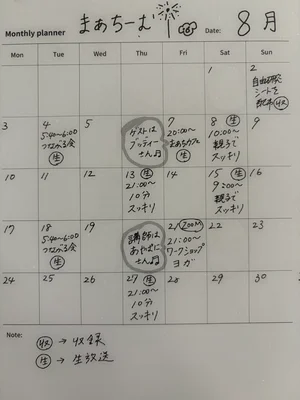 Monthly planner まあちーむ Date: 8月
Mon Tue Wed Thu Fri Sat Sun
1 2
自由研究
シートを
収
3 4 5 7 8 生 9
5:40~6:00
つながる会
生
ゲストは
グッティー
さん♫
20:00~
まあちカフェ
生
10:00~
親子で
スッキリ
10 11 12 13 生 14 15 生 16
21:00~
10分
スッキリ
9:00~
親子で
スッキリ
17 18 19 21 ZOOM 22 23
5:40~6:00
つながる会
生
講師は
あやぱに
さん♫
21:00~
ワークショップ
ヨガ
24 25 26 27 生 28 29 30
21:00~
10分
スッキリ
Note:
収 → 収録
生 → 生放送